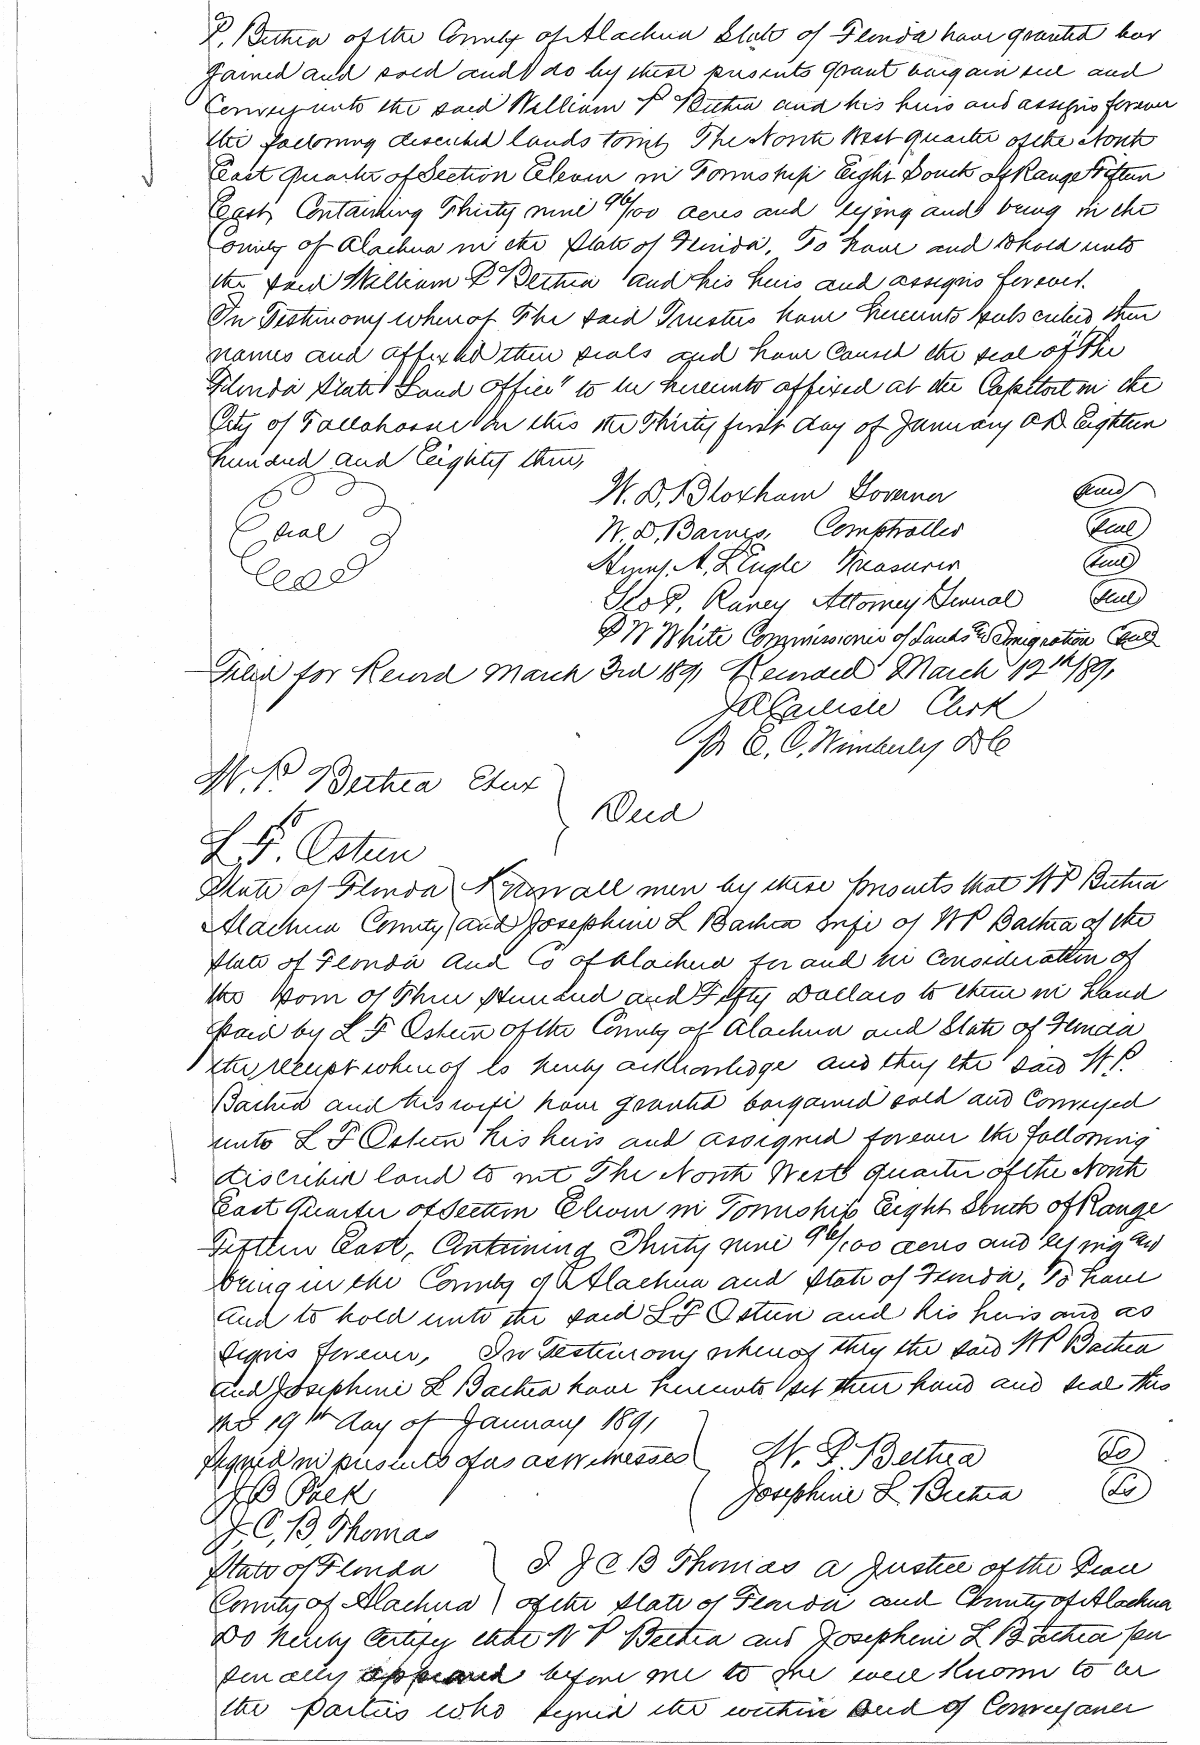 P. Bethea of the County of Alachua State of Florida have granted bar
gained and sold and do by these presents grant bargain sell and
Convey unto the said William P Bethea and his heirs and assigns forever
the following described lands towit, The North West quarter of the North
East quarter of Section Eleven in Township Eight South of Range Fifteen
East, Containing Thirty nine 96/100 acres and lying and being in the
County of Alachua in the State of Florida, To have and to hold unto
the said William P Bethea and his heirs and assigns forever.
In Testimony whereof The said Trustees have hereunto subscribed their
names and affixed their seals and have caused the seal of "The
Florida State Land Office" to be hereunto affixed at the Capitol in the
City of Tallahassee on this the Thirty first day of January AD Eighteen
hundred and Eighty three,
W. D. Bloxham Governor seal
seal W. D. Barnes, Comptroller seal
Henry A, L'Engle Treasurer seal
Geo P. Raney Attorney General seal
P W White Commissioner of Lands & Imigration seal
Filed for Record March 3rd 1891 Recorded March 12th 1891
J A Carlisle Clerk
pr E. C. Wimberly DC
W. P. Bethea Etux
to } Deed
L. F. Osteen
State of Florida ) Know all men by these presents that W P Bethea
Alachua County ) and Josephine L Bethea wife of W P Bethea of the
State of Florida and Co of Alachua for and in consideration of
the Som of Three Hundred and Fifty Dollars to them in hand
paid by L F Osteen of the County of Alachua and State of Florida
the receipt whereof is hereby acknowledge and they the said W. P.
Bethea and his wife have granted bargained sold and Conveyed
unto L F Osteen his heirs and assigned forever the following
discribed land to wit The North West quarter of the North
East Quarter of Section Eleven in Township Eight South of Range
Fifteen East, Containing Thirty nine 96/100 acres and lying and
being in the County of Alachua and State of Florida, To have
and to hold unto the said L F Osteen and his heirs and as
signs forever, In Testimony whereof they the said W P Bethea
and Josephine L Bethea have hereunto set their hand and seal this
the 19th day of January 1891
Signed in presents of us as Witnesses W. P. Bethea Ls
J B Peek Josephine L Bethea Ls
J, C, B, Thomas
State of Florida } I J C B Thomas a Justice of the Peace
County of Alachua ) of the State of Florida and County of Alachua
Do hereby Certify that W P Bethea and Josephine L Bethea per
sonally appeared before me to me well known to be
the parties who signed the within deed of Conveyance